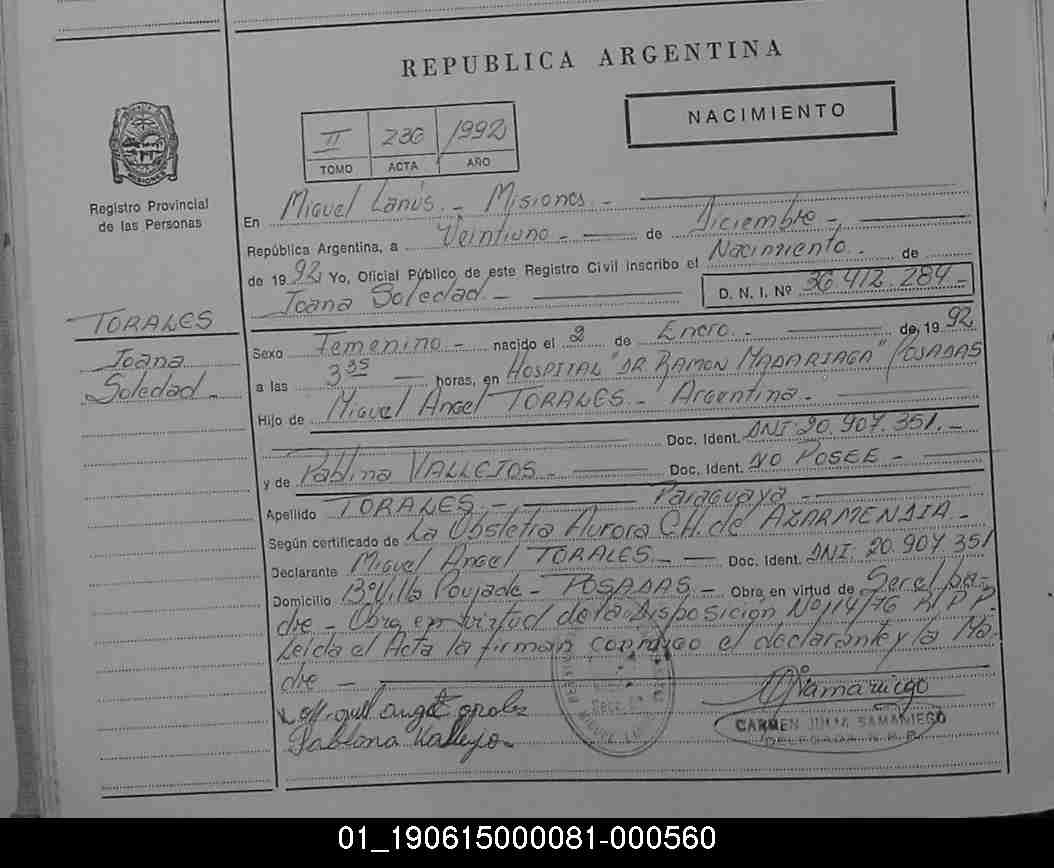 REPUBLICA ARGENTINA
NACIMIENTO
II 236 1992
TOMO ACTA AÑO
MISIONES
Registro Provincial
de las Personas
TORALES
Joana
Soledad -
En Miguel Lanús - Misiones -
República Argentina, a Veintiuno - de Diciembre -
de 1992 Yo, Oficial Público de este Registro Civil inscribo el Nacimiento - de
Joana Soledad - D. N. I. Nº 36.412.284-
Sexo Femenino - nacido el 2 de Enero - de 1992
a las 3 35 horas, en HOSPITAL "DR. RAMON MADARIAGA" POSADAS
Hijo de Miguel Angel TORALES - Argentina -
Doc. Ident. DNI: 20.907.351.-
y de Pablina VALLEJOS - Doc. Ident. NO POSEE -
Apellido TORALES - Paraguaya -
Según certificado de La Obstetra Aurora CH. de AZARMENDIA -
Declarante Miguel Angel TORALES - Doc. Ident. DNI. 20.907.351
Domicilio Bº Villa Poujade - POSADAS - Obra en virtud de Ser el pa-
dre - Obra en virtud de la Disposición Nº 114/76 R.P.P.
Leída el Acta la firman conmigo el declarante y la Ma-
dre -
Miguel Angel Torales
Pablina Vallejo
CARMEN JULIA SAMANIEGO
DELEGADA R.P.P.
01_190615000081-000560